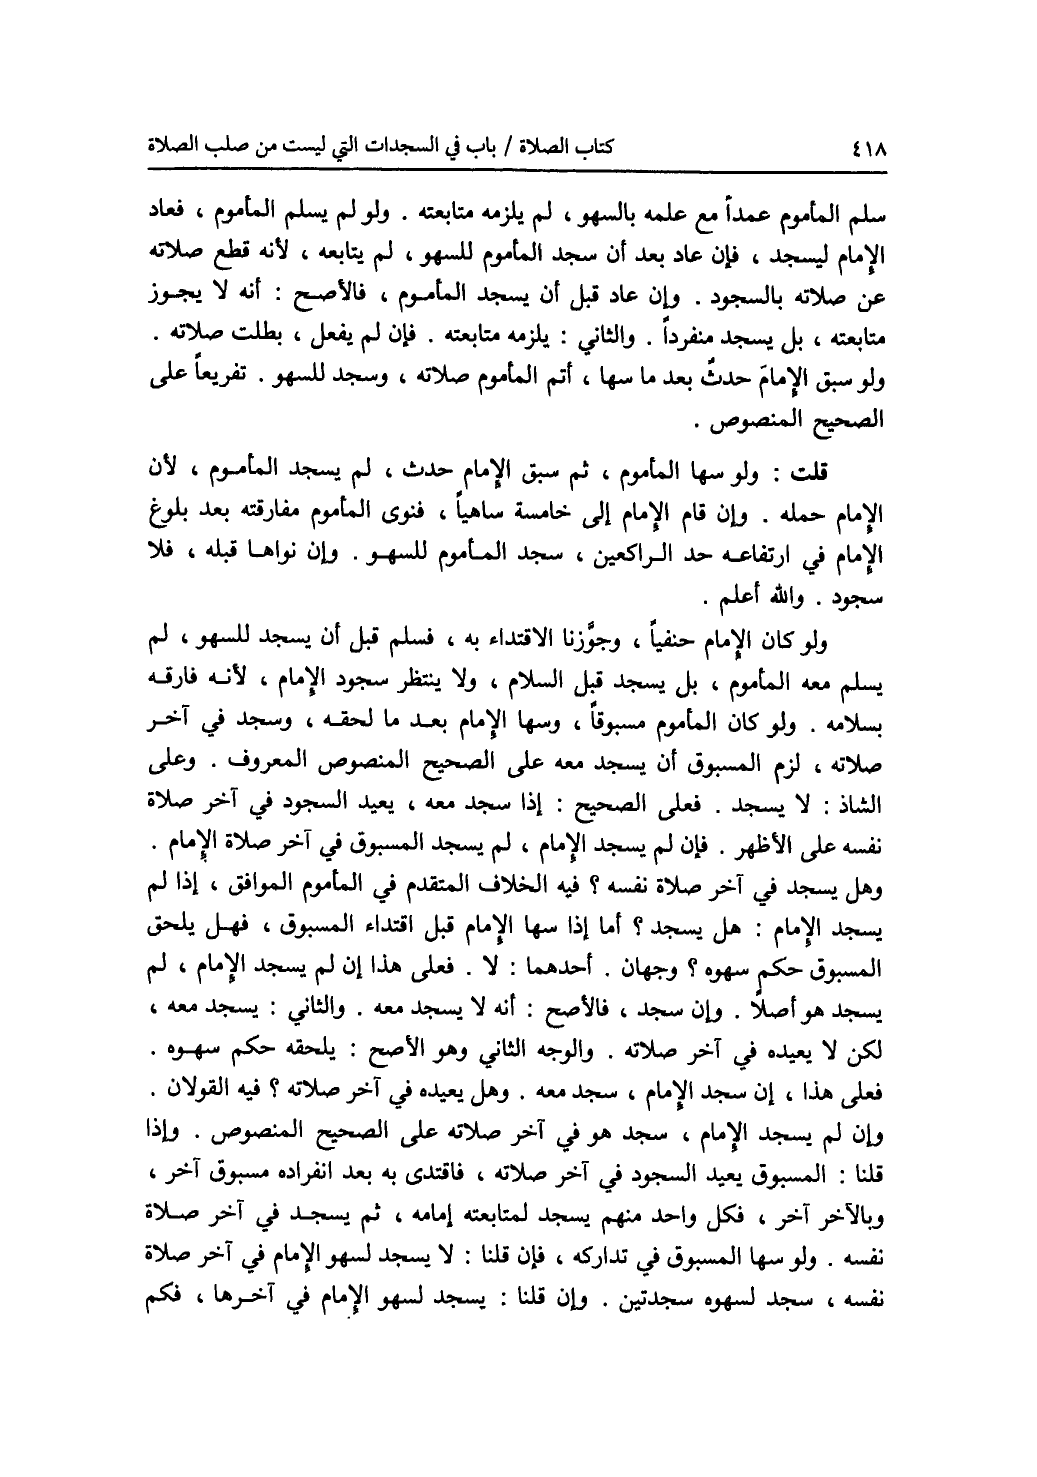 ٤١٨ كتاب الصلاة / باب في السجدات التي ليست من صلب الصلاة
سلم المأموم عمداً مع علمه بالسهو ، لم يلزمه متابعته . ولو لم يسلم المأموم ، فعاد
الإمام ليسجد ، فإن عاد بعد أن سجد المأموم للسهو ، لم يتابعه ، لأنه قطع صلاته
عن صلاته بالسجود . وإن عاد قبل أن يسجد المأموم ، فالأصح : أنه لا يجوز
متابعته ، بل يسجد منفرداً . والثاني : يلزمه متابعته . فإن لم يفعل ، بطلت صلاته .
ولو سبق الإمامَ حدثٌ بعد ما سها ، أتم المأموم صلاته ، وسجد للسهو . تفريعاً على
الصحيح المنصوص .
قلت : ولو سها المأموم ، ثم سبق الإمام حدث ، لم يسجد المأموم ، لأن
الإمام حمله . وإن قام الإمام إلى خامسة ساهياً ، فنوى المأموم مفارقته بعد بلوغ
الإمام في ارتفاعه حد الراكعين ، سجد المأموم للسهو . وإن نواها قبله ، فلا
سجود . والله أعلم .
ولو كان الإمام حنفياً ، وجوَّزنا الاقتداء به ، فسلم قبل أن يسجد للسهو ، لم
يسلم معه المأموم ، بل يسجد قبل السلام ، ولا ينتظر سجود الإمام ، لأنه فارقه
بسلامه . ولو كان المأموم مسبوقاً ، وسها الإمام بعد ما لحقه ، وسجد في آخر
صلاته ، لزم المسبوق أن يسجد معه على الصحيح المنصوص المعروف . وعلى
الشاذ : لا يسجد . فعلى الصحيح : إذا سجد معه ، يعيد السجود في آخر صلاة
نفسه على الأظهر . فإن لم يسجد الإمام ، لم يسجد المسبوق في آخر صلاة الإمام .
وهل يسجد في آخر صلاة نفسه ؟ فيه الخلاف المتقدم في المأموم الموافق ، إذا لم
يسجد الإمام : هل يسجد ؟ أما إذا سها الإمام قبل اقتداء المسبوق ، فهل يلحق
المسبوق حكم سهوه ؟ وجهان . أحدهما : لا . فعلى هذا إن لم يسجد الإمام ، لم
يسجد هو أصلاً . وإن سجد ، فالأصح : أنه لا يسجد معه . والثاني : يسجد معه ،
لكن لا يعيده في آخر صلاته . والوجه الثاني وهو الأصح : يلحقه حكم سهوه .
فعلى هذا ، إن سجد الإمام ، سجد معه . وهل يعيده في آخر صلاته ؟ فيه القولان .
وإن لم يسجد الإمام ، سجد هو في آخر صلاته على الصحيح المنصوص . وإذا
قلنا : المسبوق يعيد السجود في آخر صلاته ، فاقتدى به بعد انفراده مسبوق آخر ،
وبالآخر آخر ، فكل واحد منهم يسجد لمتابعته إمامه ، ثم يسجد في آخر صلاة
نفسه . ولو سها المسبوق في تداركه ، فإن قلنا : لا يسجد لسهو الإمام في آخر صلاة
نفسه ، سجد لسهوه سجدتين . وإن قلنا : يسجد لسهو الإمام في آخرها ، فكم